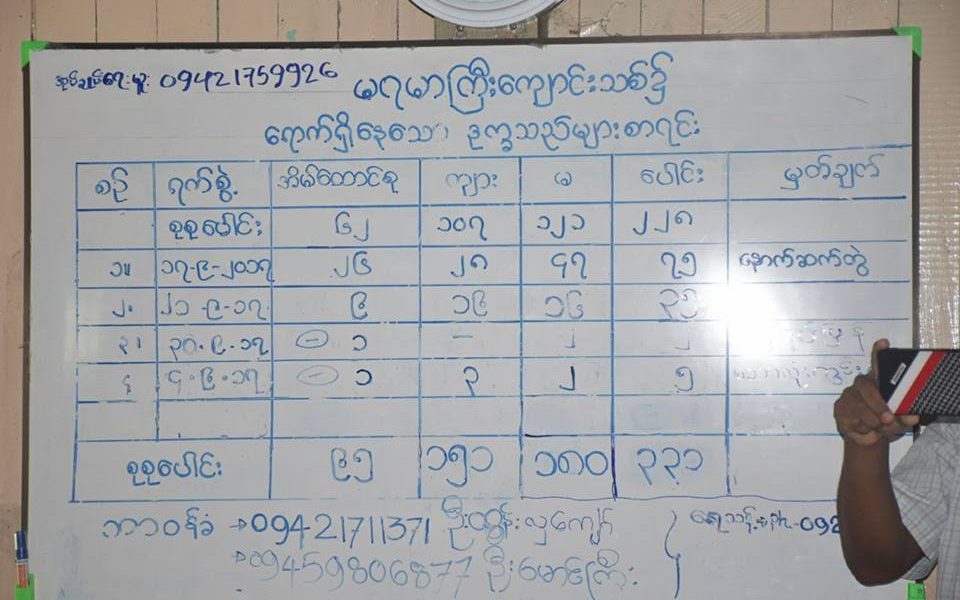 09421759926
မရမာကြီးကျောင်းသစ်၌
ရောက်ရှိနေသော ဒုက္ခသည်များစာရင်း
စဉ် ရက်စွဲ အိမ်ထောင်စု ကျား မ ပေါင်း မှတ်ချက်
စုစုပေါင်း ၆၂ ၁၀၇ ၁၂၁ ၂၂၈
၁။ ၁၇-၉-၂၀၁၇ ၂၆ ၂၈ ၄၇ ၇၅ နောက်ဆက်တွဲ
၂. ၂၁-၉-၁၇ ၆ ၁၆ ၁၆ ၃၅
၃၊ ၃၀.၉.၁၇ - ၁ - ၂ ၂
၄ ၄.၉.၁၇ - ၁ ၃ ၂ ၅
စုစုပေါင်း ၉၅ ၁၅၁ ၁၈၀ ၃၃၁
တာဝန်ခံ → 09421711371 ဦးထွန်းလှကျော်
→ 09459806877 ဦးမောင်ကြီး
Ph-092